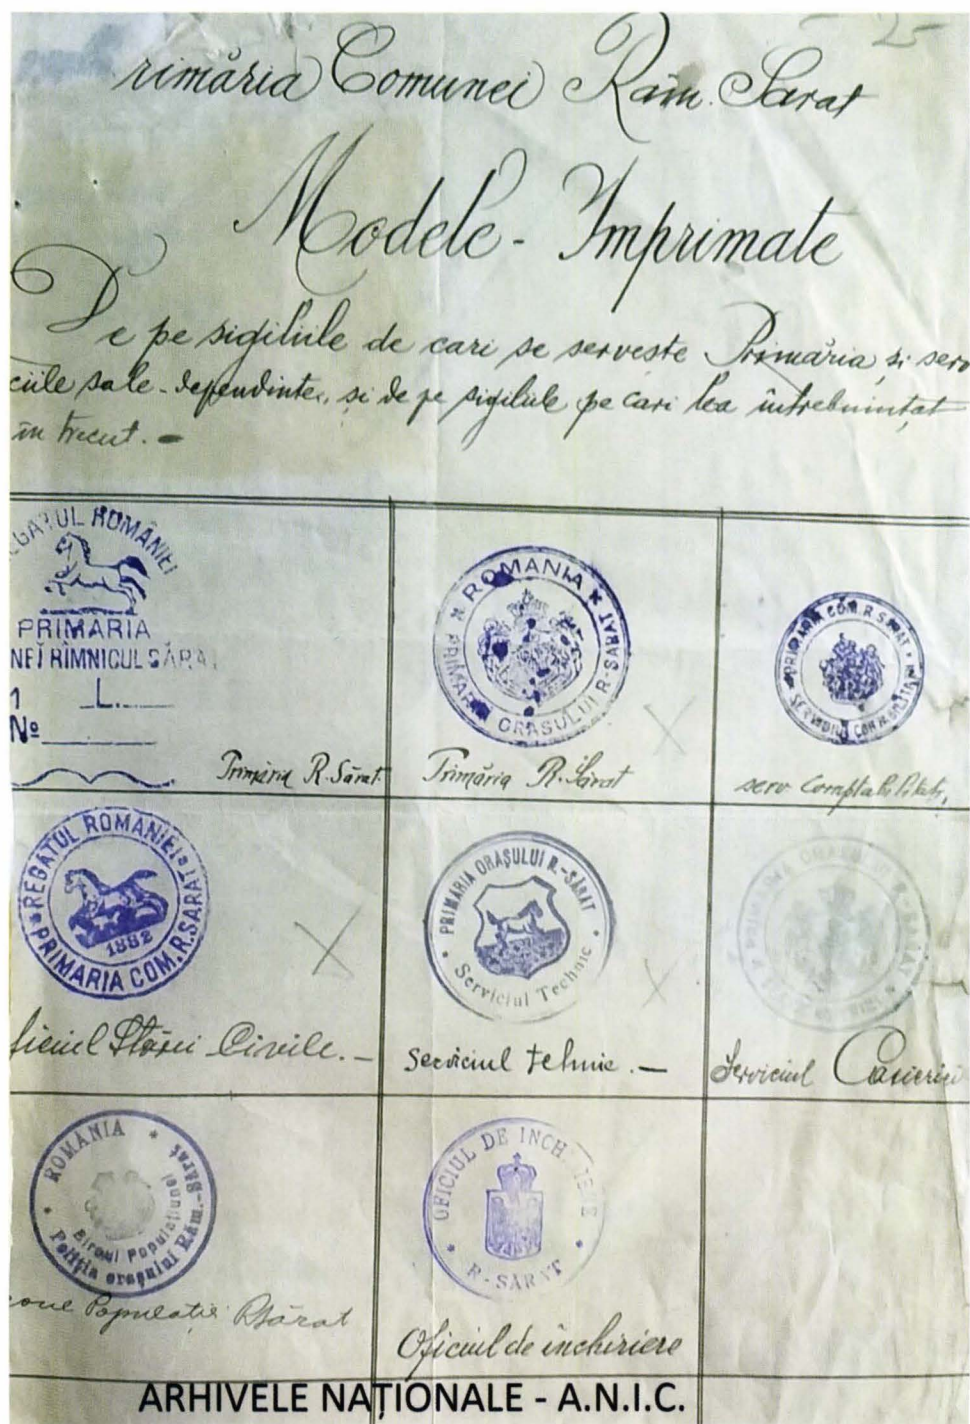 2
rimăria Comunei Râm. Sarat
Modele - Imprimate
De pe sigiliile de cari se serveste Primăria, si serv
ciile sale dependinte, si de pe sigiliile pe cari lea întrebuințat
în trecut. -
EGATUL ROMÂNIEI
PRIMARIA
NEĬ RÎMNICUL SĂRAT
1 L.
Nº
Primăria R. Sărat.
ROMANIA
PRIMARIA ORASULUI R-SARAT
Primăria R. Sărat
PRIMARIA COM. R. SARAT
serv Comptabilitatii,
REGATUL ROMANIEI
1882
PRIMARIA COM. R. SARAT
ficiul Stărei Civile. -
PRIMARIA ORAŞULUI R.-SĂRAT
Serviciul Technic
Serviciul tehnic. -
Serviciul Casieriei
ROMÂNIA
Biroul Populațiunei
Poliția orașului Râm.-Sărat
Populatie RSărat
OFICIUL DE INCH IERE
R-SĂRAT
Oficiul de închiriere
ARHIVELE NAȚIONALE - A.N.I.C.